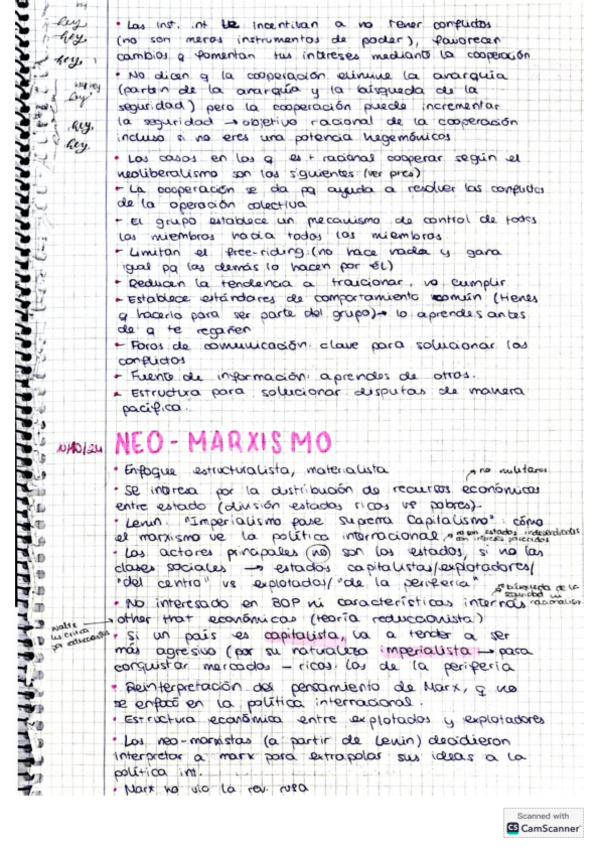 hey
hey
hey,
hey
hey,
hey
• Las inst. int incentivan a no tener conflictos
(no son meros instrumentos de poder), favorecen
cambios q fomentan tus intereses mediante la cooperación
• No dicen q la cooperación elimine la anarquía
(parten de la anarquía y la búsqueda de la
seguridad) pero la cooperación puede incrementar
la seguridad → objetivo racional de la cooperación
incluso si no eres una potencia hegemónicos
• Los casos en los q es + racional cooperar según el
neoliberalismo son los siguientes: (ver pres)
– La cooperación se da pq ayuda a resolver los conflictos
de la operación colectiva
– El grupo establece un mecanismo de control de todos
los miembros hacia todos los miembros.
– Limitan el free-riding: (no hace nada y gana
igual pq los demás lo hacen por él)
– Reducen la tendencia a traicionar, no cumplir
– Establece estándares de comportamiento común (tienes
q hacerlo para ser parte del grupo) → lo aprendes antes
de q te regañen
– Foros de comunicación: clave para solucionar los
conflictos
– Fuente de información: aprendes de otros.
– Estructura para solucionar disputas de manera
pacífica.
11/10/24 NEO-MARXISMO
• Enfoque estructuralista, materialista
→ no militares
• Se interesa por la distribución de recursos económicos
entre estado (división estados ricos vs pobres).
• Lenin. "Imperialismo fase suprema capitalismo" cómo
el marxismo ve la política internacional
→ no son estados independientes
con intereses parecidos
• Los actores principales (no) son los estados, si no las
clases sociales → estados capitalistas/explotadores/
"del centro" vs explotados/"de la periferia"
→ búsqueda de la
seguridad ni
racionalistas
• No interesado en BOP ni características internas
other that económicas (teoría reduccionista)
Waltz
les critica
por reduccionistas
• Si un país es capitalista, va a tender a ser
más agresivo (por su naturaleza imperialista → para
conquistar mercados – ricos: los de la periferia
• Reinterpretación del pensamiento de Marx, q no
se enfocó en la política internacional.
• Estructura económica entre explotados y explotadores
• Los neo-marxistas (a partir de Lenin) decidieron
interpretar a marx para extrapolar sus ideas a la
política int.
• Marx no vio la rev. rusa
Scanned with
CS CamScanner